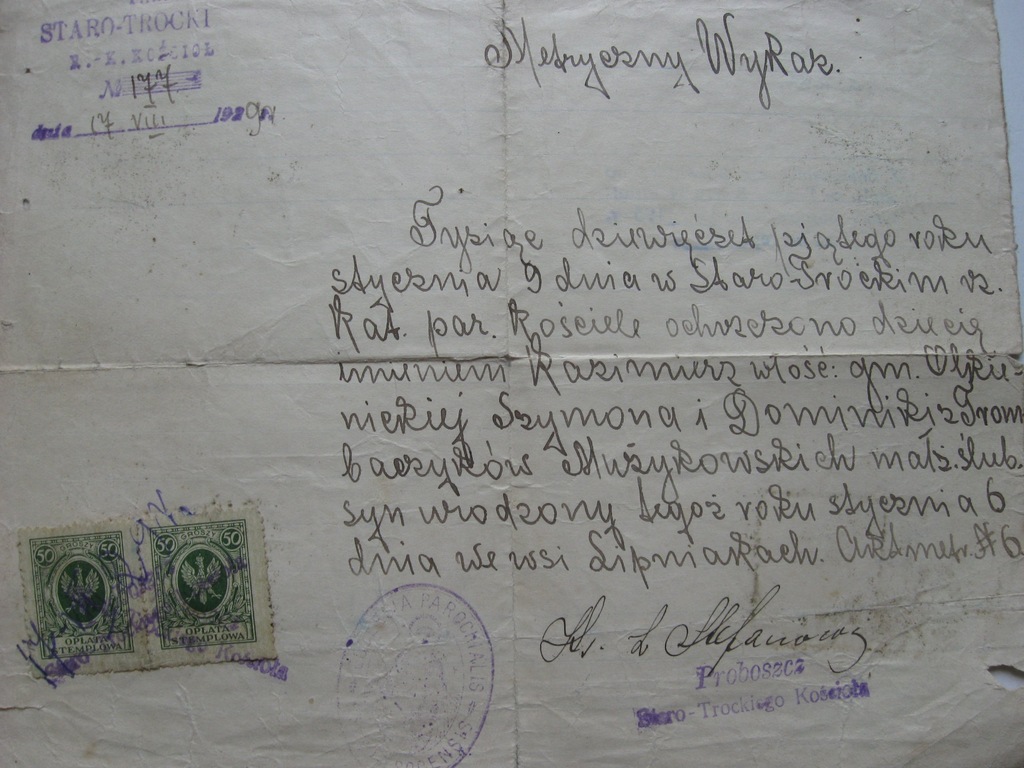 STARO-TROCKI
R.-K. KOŚCIOŁ
№ 177
dnia 17 VIII 1929 r.
Metryczny Wykaz.
Tysiąc dziewięćset piątego roku
stycznia 9 dnia w Staro-Trockim rz.
Kat. par. Kościele ochrzczono dziecię
imieniem Kazimierz włość: gm. Olkie-
nickiej Szymona i Dominiki z Trom
baczyków Mużykowskich małż. ślub.
syn urodzony tegoż roku stycznia 6
dnia we wsi Lipniakach. Akt metr. # 6
Ks. L Stefanowicz
Proboszcz
Staro-Trockiego Kościoła
50 50
OPŁATA
STEMPLOWA
50 50
OPŁATA
STEMPLOWA
PAROCHIALIS